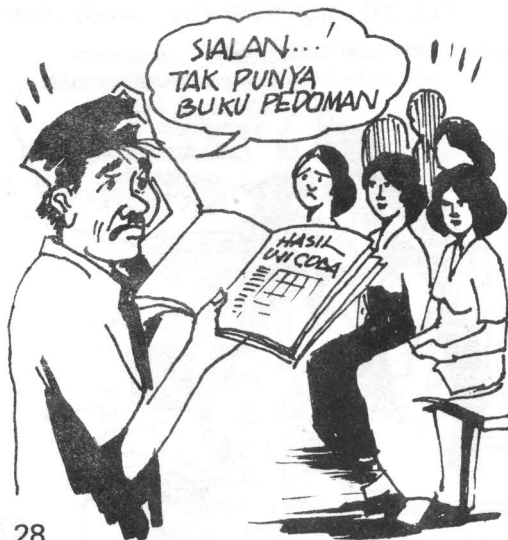 SIALAN...!
TAK PUNYA
BUKU PEDOMAN
HASIL
UJI COBA
28